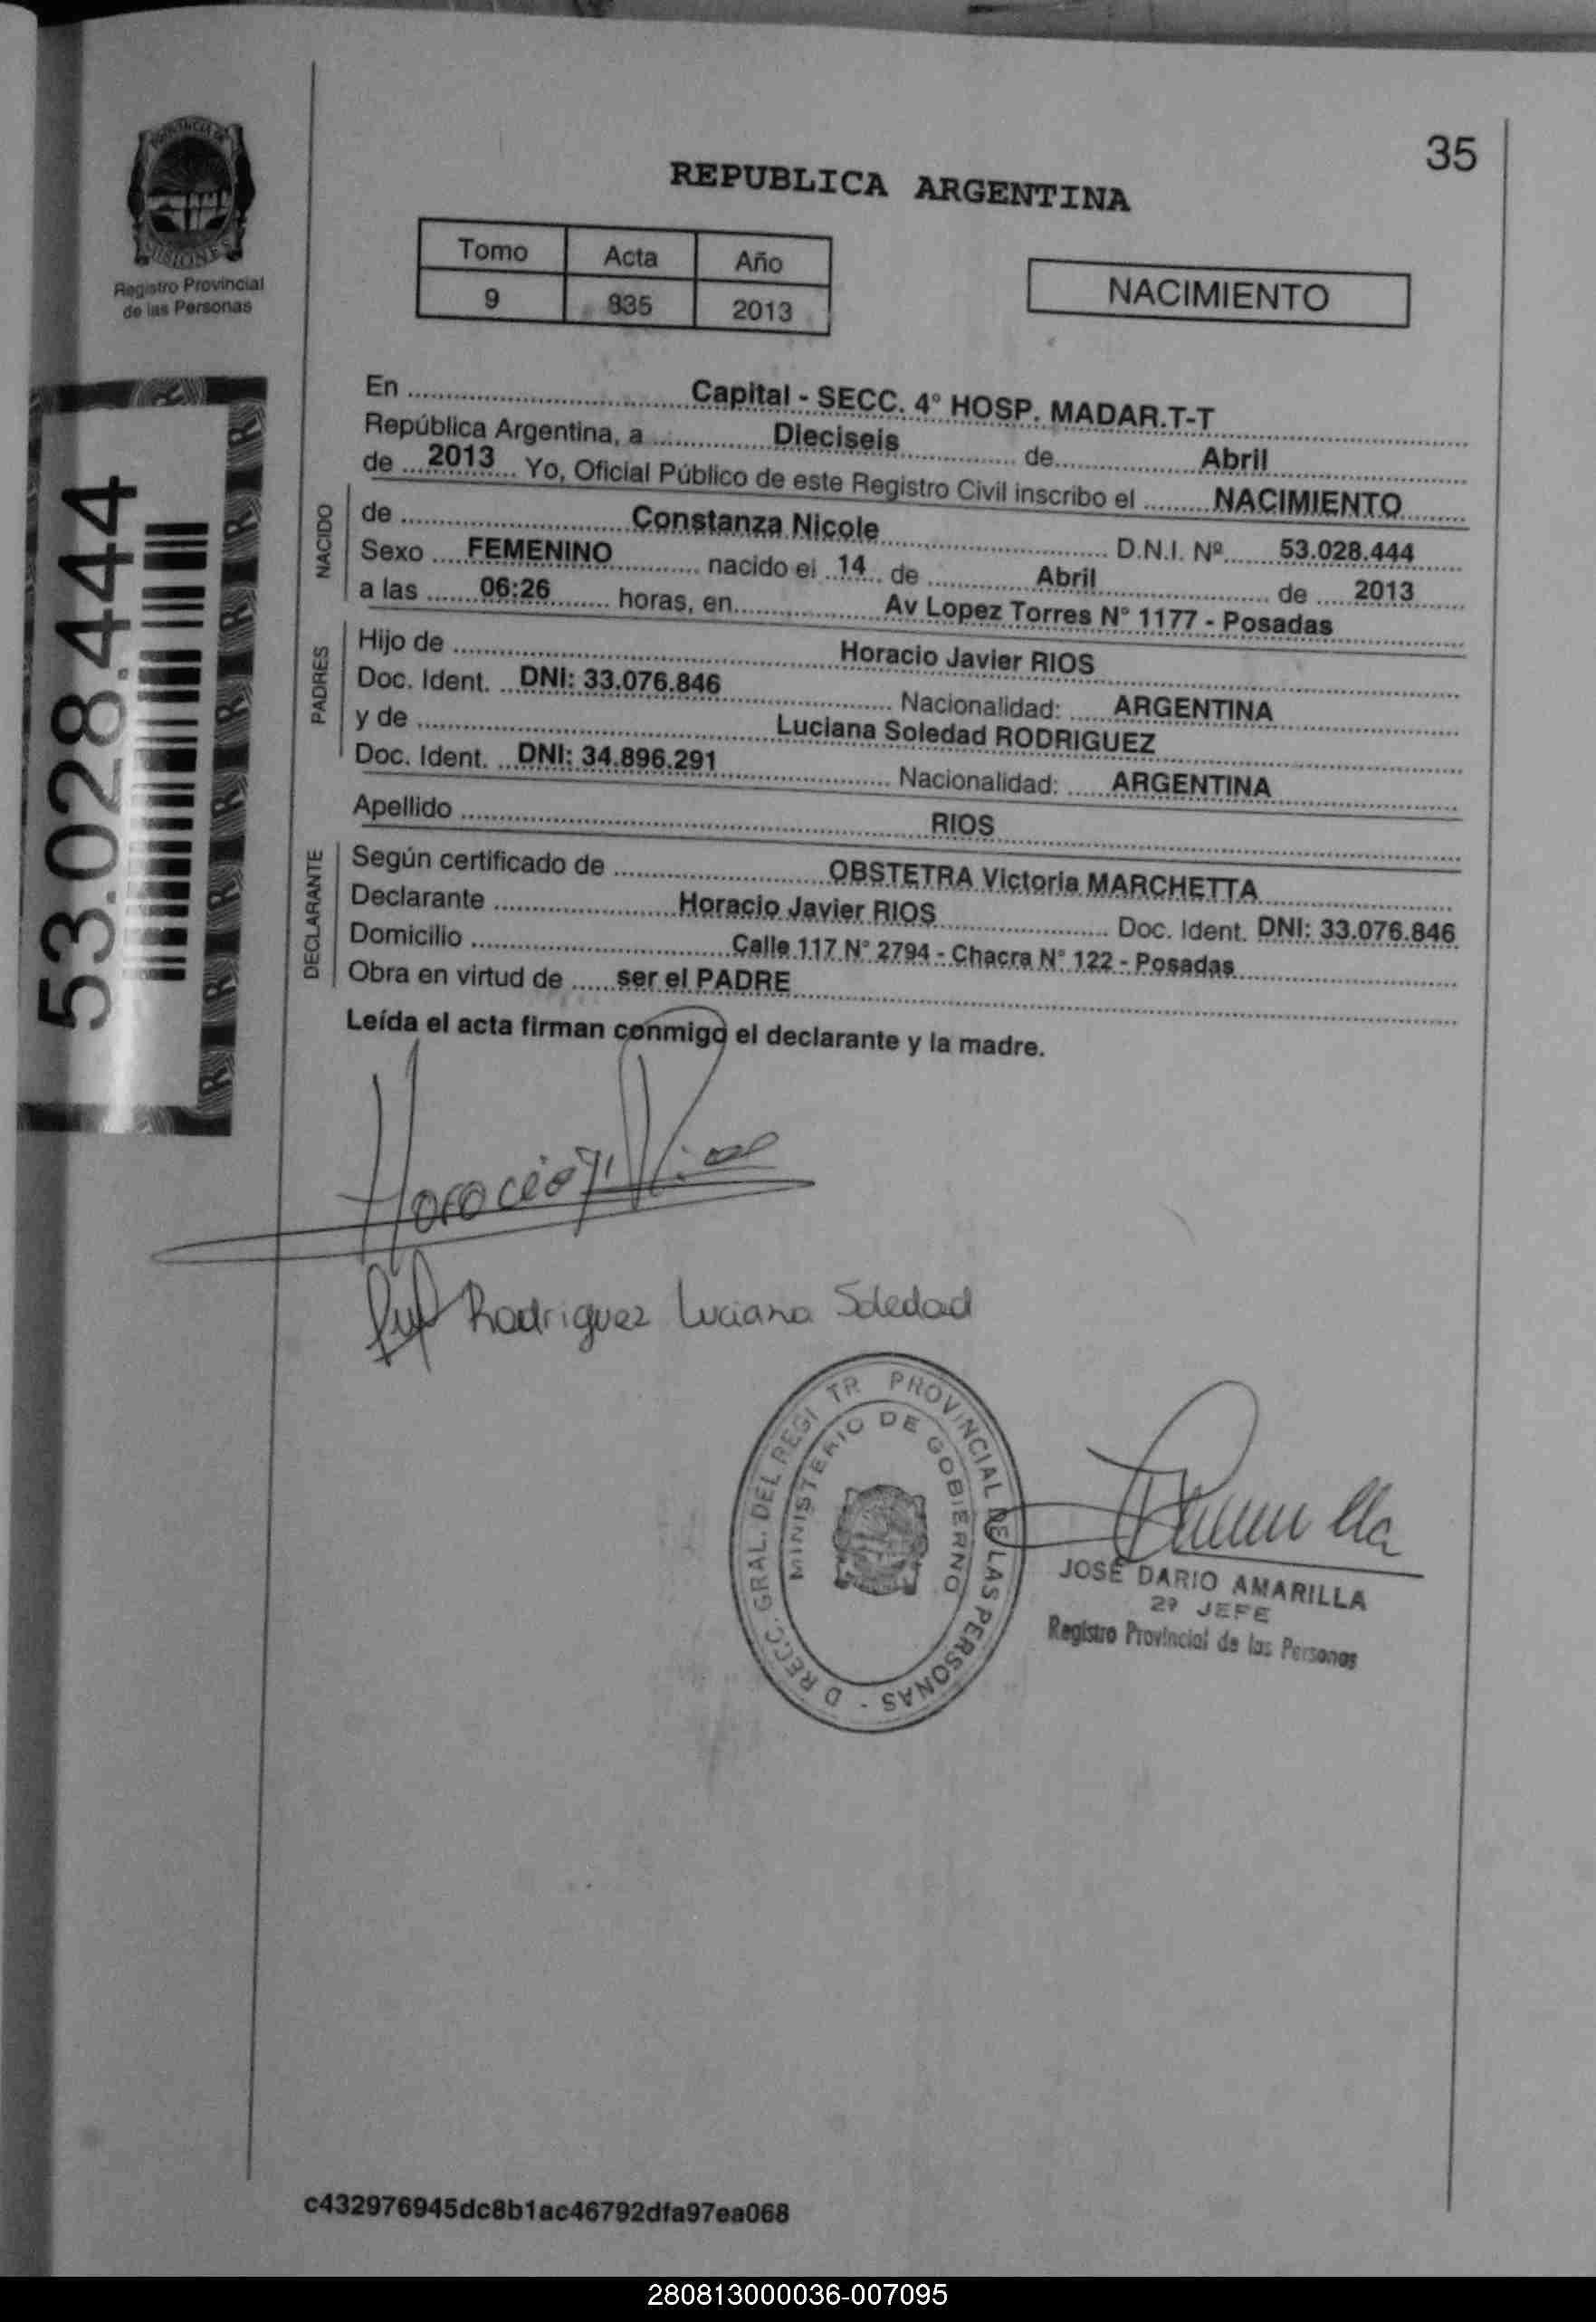 PROVINCIA DE
MISIONES
Registro Provincial
de las Personas
35
REPUBLICA ARGENTINA
Tomo Acta Año
9 835 2013
NACIMIENTO
53.028.444
En Capital - SECC. 4° HOSP. MADAR.T-T
República Argentina, a Dieciseis de Abril
de 2013 Yo, Oficial Público de este Registro Civil inscribo el NACIMIENTO
NACIDO
de Constanza Nicole D.N.I. Nº 53.028.444
Sexo FEMENINO nacido el 14 de Abril de 2013
a las 06:26 horas, en Av Lopez Torres N° 1177 - Posadas
PADRES
Hijo de Horacio Javier RIOS
Doc. Ident. DNI: 33.076.846 Nacionalidad: ARGENTINA
y de Luciana Soledad RODRIGUEZ
Doc. Ident. DNI: 34.896.291 Nacionalidad: ARGENTINA
Apellido RIOS
DECLARANTE
Según certificado de OBSTETRA Victoria MARCHETTA
Declarante Horacio Javier RIOS Doc. Ident. DNI: 33.076.846
Domicilio Calle 117 N° 2794 - Chacra N° 122 - Posadas
Obra en virtud de ser el PADRE
Leída el acta firman conmigo el declarante y la madre.
Horacio J. Rios
Rodriguez Luciana Soledad
D RECC. GRAL. DEL REGI TR PROVINCIAL DE LAS PERSONAS -
MINISTERIO DE GOBIERNO
JOSÉ DARIO AMARILLA
2º JEFE
Registro Provincial de las Personas
c432976945dc8b1ac46792dfa97ea068
280813000036-007095